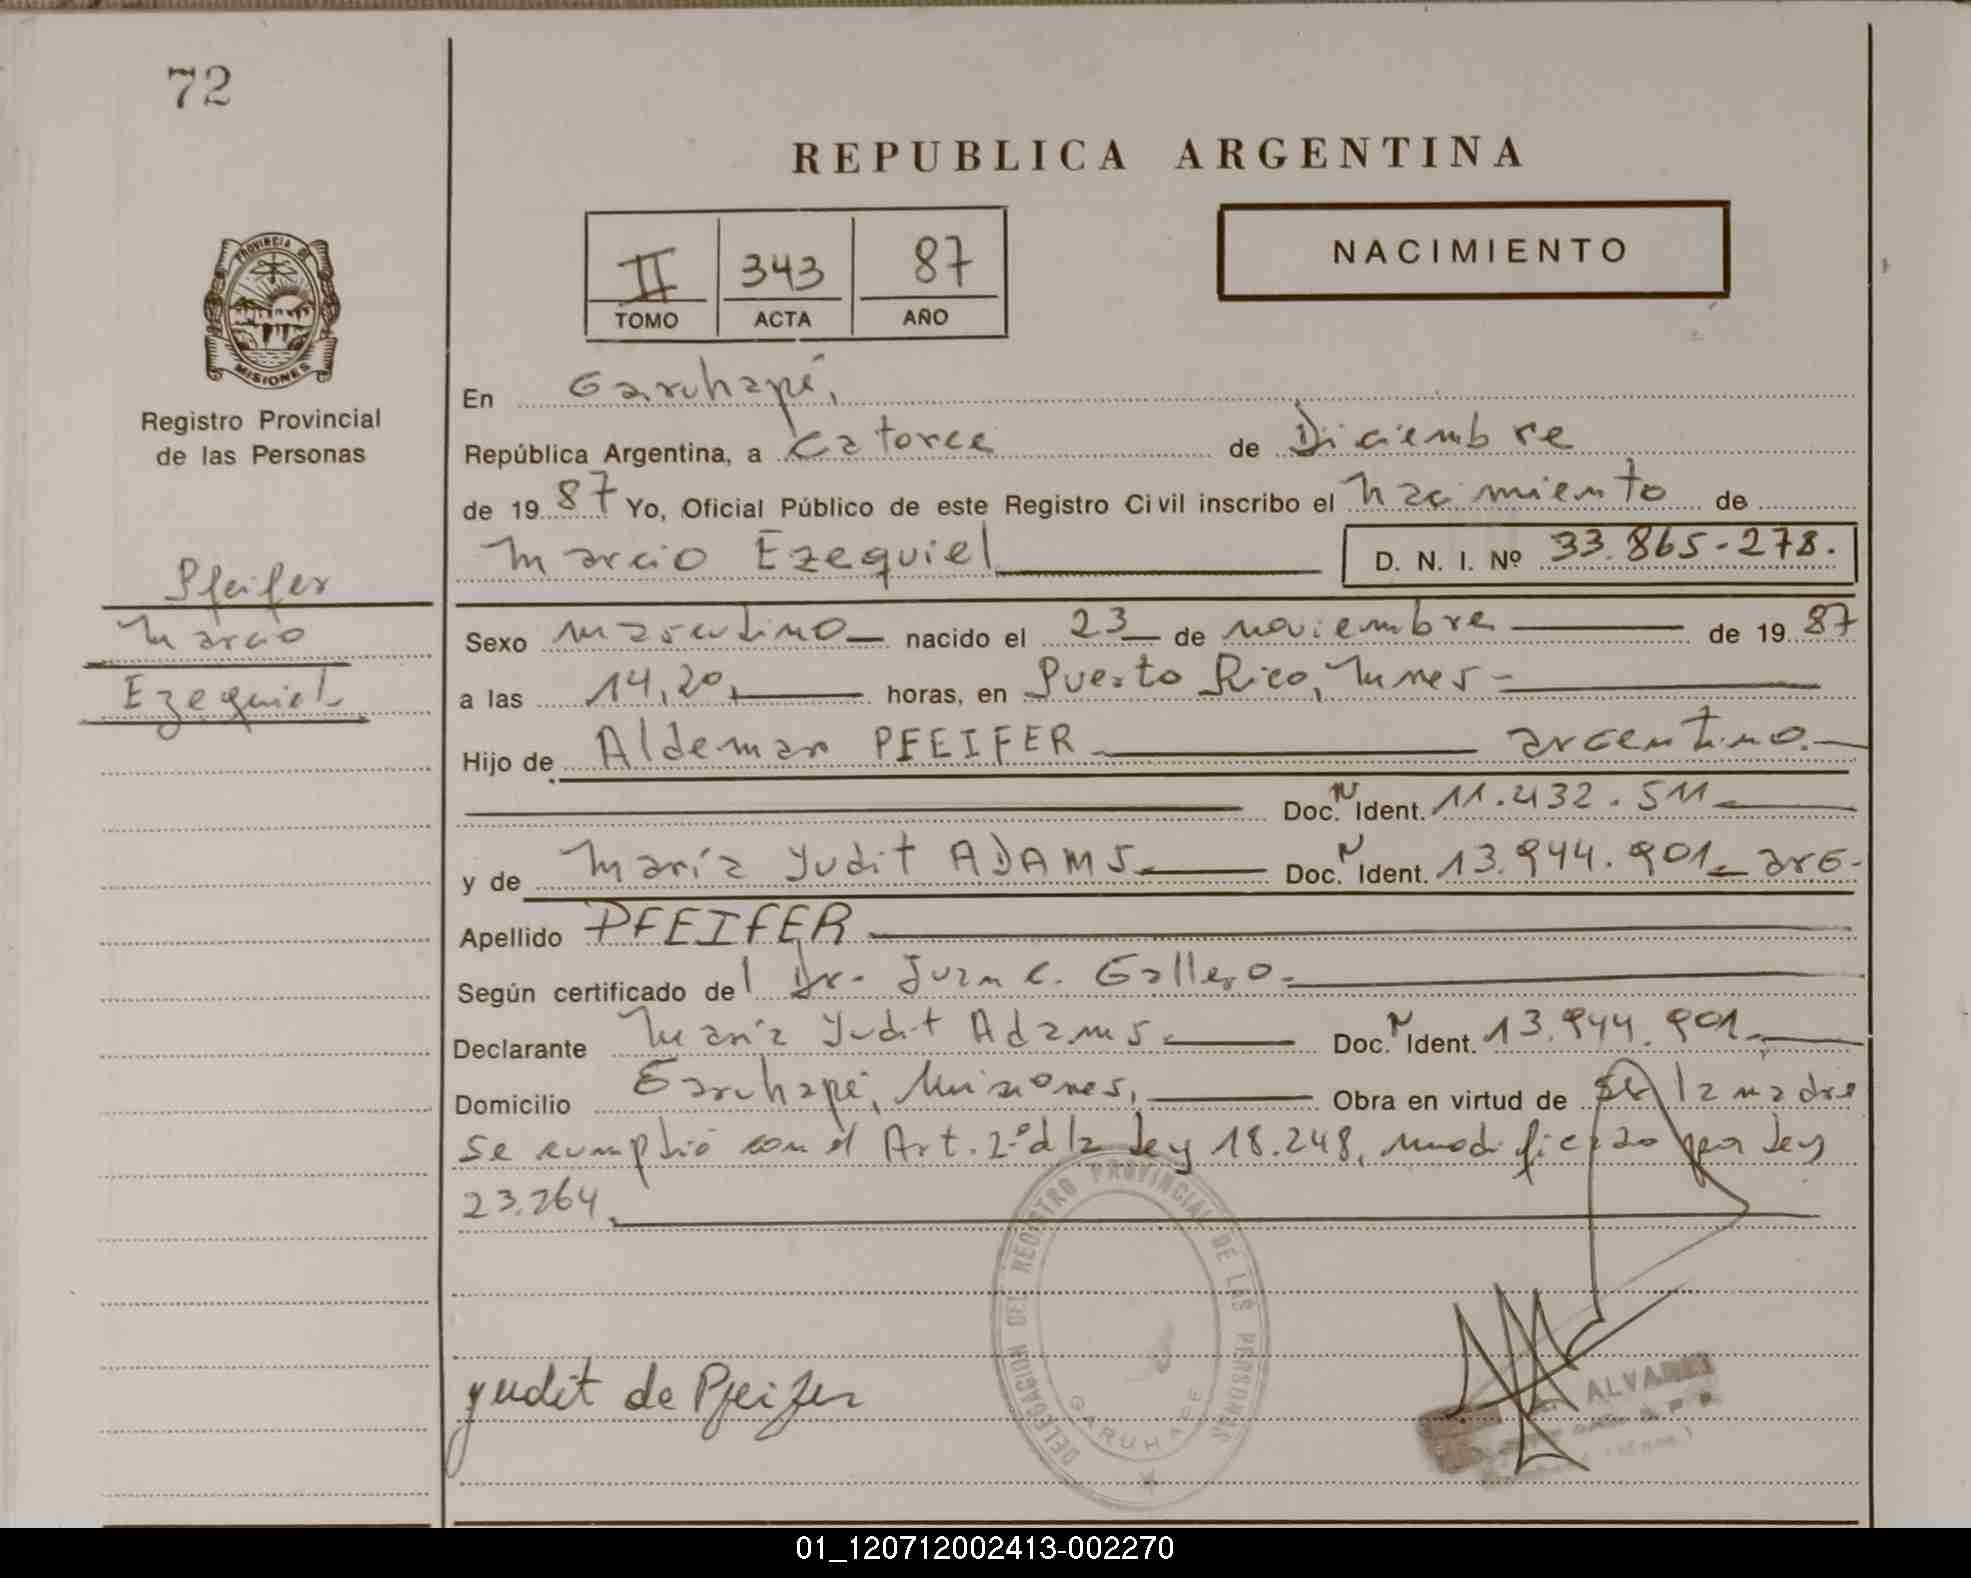 72
REPUBLICA ARGENTINA
NACIMIENTO
II 343 87
TOMO ACTA AÑO
PROVINCIA DE
MISIONES
Registro Provincial
de las Personas
En Garuhapé,
República Argentina, a Catorce de Diciembre
de 1987 Yo, Oficial Público de este Registro Civil inscribo el nacimiento de
Marcio Ezequiel D. N. I. Nº 33.865-278.
Pfeifer
Marcio
Ezequiel
Sexo masculino nacido el 23 de noviembre de 1987
a las 14,20, horas, en Puerto Rico, Mnes-
Hijo de Aldemar PFEIFER argentino.
Doc. N Ident. 11.432.511
y de María Yudit ADAMS Doc. N Ident. 13.944.901 arg-
Apellido PFEIFER
Según certificado del Dr. Juan C. Gallego.
Declarante María Yudit Adams Doc. N Ident. 13.944.901
Domicilio Garuhapé, Misiones, Obra en virtud de ser la madre
Se cumplió con el Art. 2º d la ley 18.248, modificado por ley
23.264
DELEGACION DEL REGISTRO PROVINCIAL DE LAS PERSONAS
GARUHAPE
yudit de Pfeifer
ALVAREZ
01_120712002413-002270